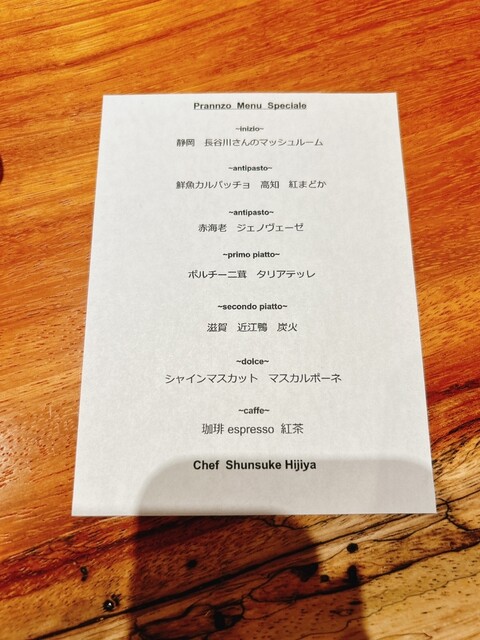 Prannzo Menu Speciale
~inizio~
静岡 長谷川さんのマッシュルーム
~antipasto~
鮮魚カルパッチョ 高知 紅まどか
~antipasto~
赤海老 ジェノヴェーゼ
~primo piatto~
ポルチーニ茸 タリアテッレ
~secondo piatto~
滋賀 近江鴨 炭火
~dolce~
シャインマスカット マスカルポーネ
~caffe~
珈琲 espresso 紅茶
Chef Shunsuke Hijiya